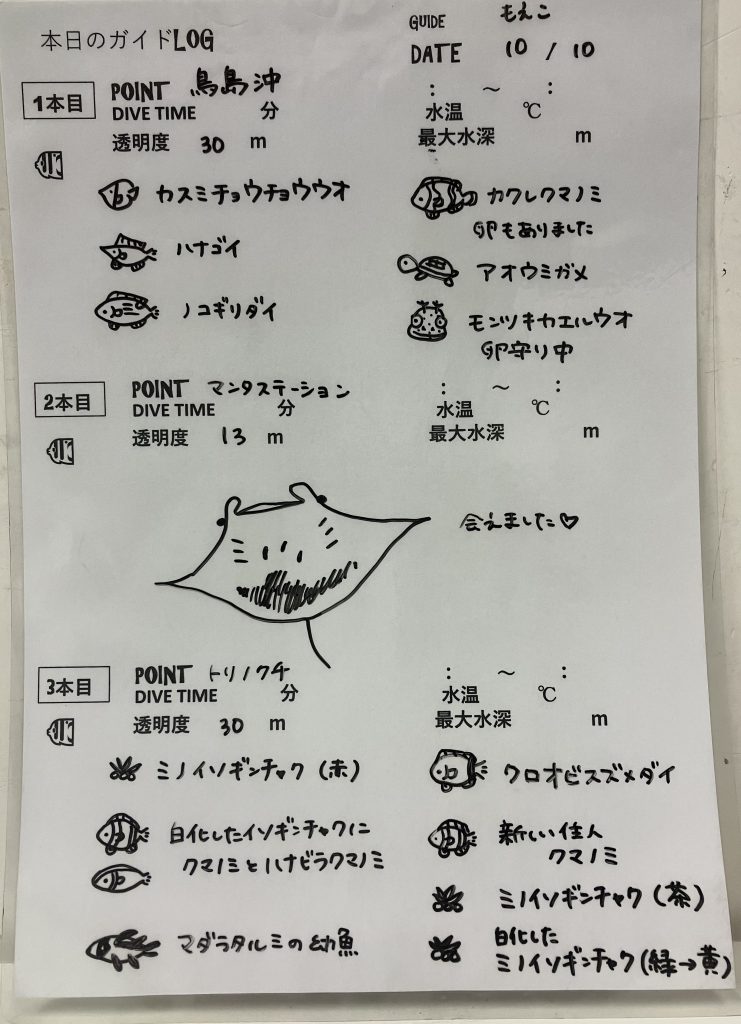 本日のガイドLOG
GUIDE もえこ
DATE 10 / 10
1本目
POINT 鳥島沖
DIVE TIME 分
透明度 30 m
: ～ :
水温 ℃
最大水深 m
カスミチョウチョウウオ
ハナゴイ
ノコギリダイ
カクレクマノミ
GPもありました
アオウミガメ
モンツキカエルウオ
GP守り中
2本目
POINT マンタステーション
DIVE TIME 分
透明度 13 m
: ～ :
水温 ℃
最大水深 m
会えました♡
3本目
POINT トリノクチ
DIVE TIME 分
透明度 30 m
: ～ :
水温 ℃
最大水深 m
ミノイソギンチャク (赤)
白化したイソギンチャクに
クマノミとハナビラクマノミ
マダラタルミの幼魚
クロオビスズメダイ
新しい住人
クマノミ
ミノイソギンチャク (茶)
白化した
ミノイソギンチャク (緑→黄)